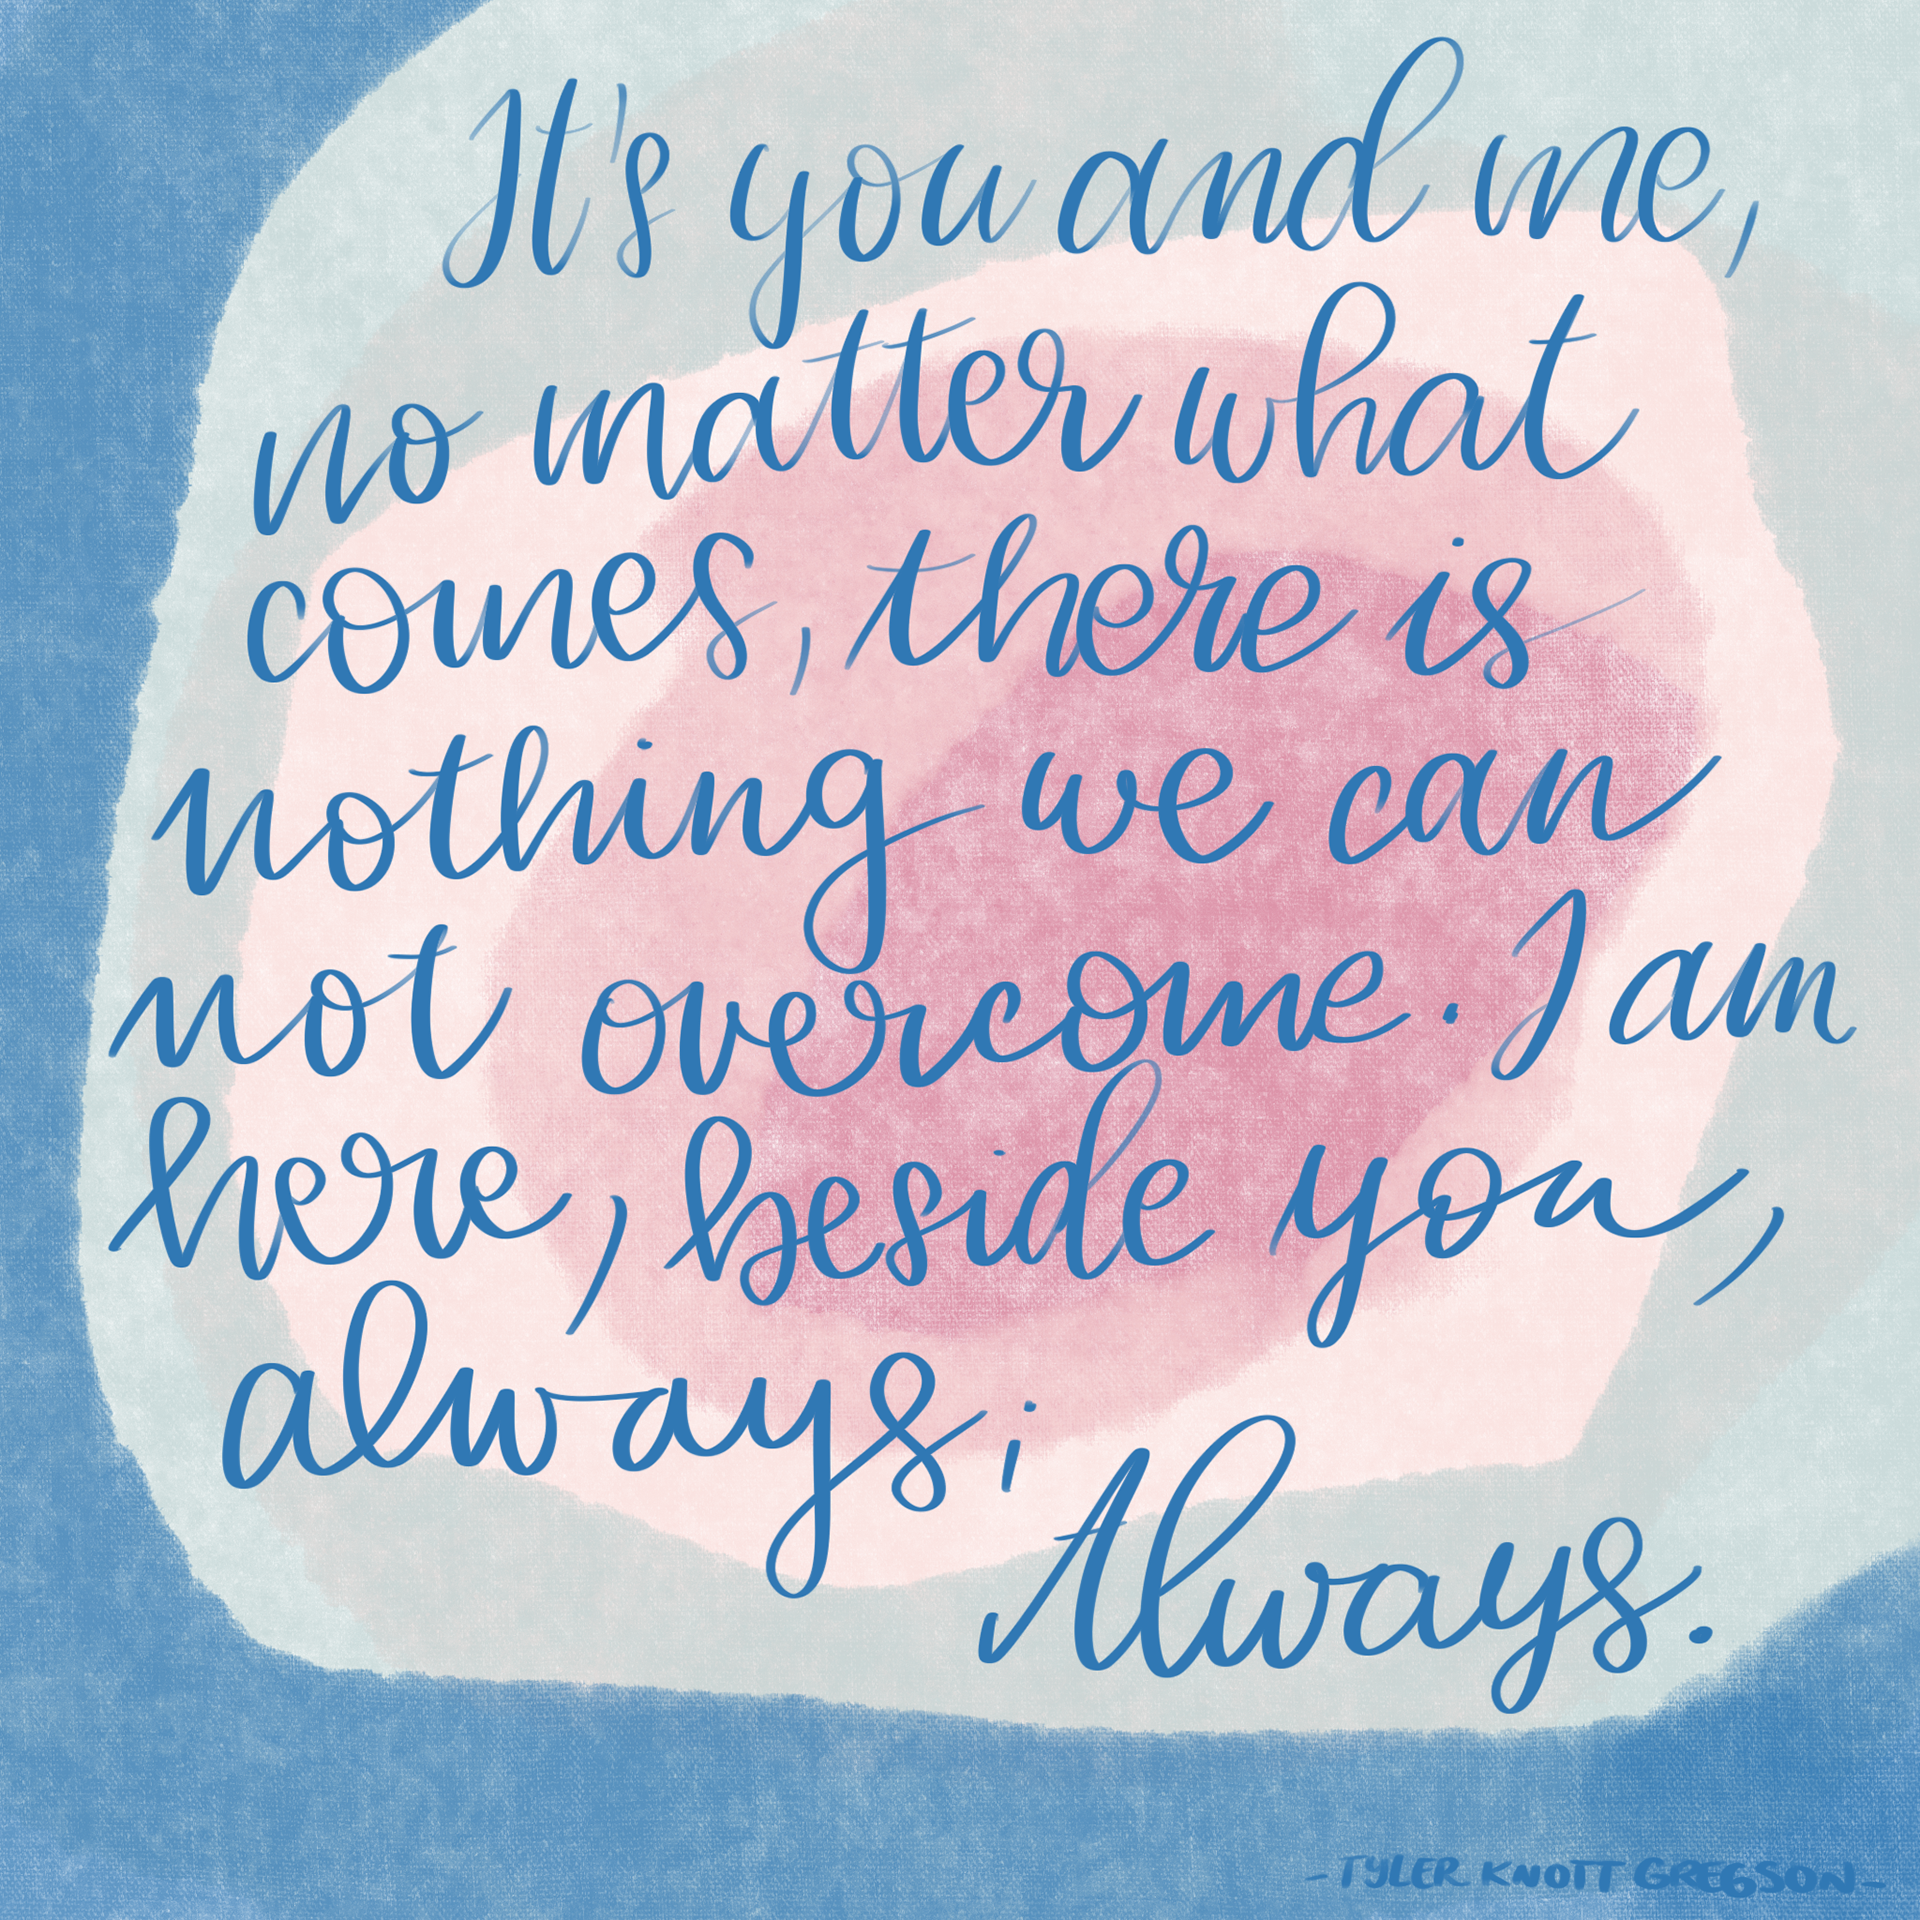 It's you and me,
no matter what
comes, there is
nothing we can
not overcome. I am
here, beside you,
always;
Always.
-TYLER KNOTT GREGSON-